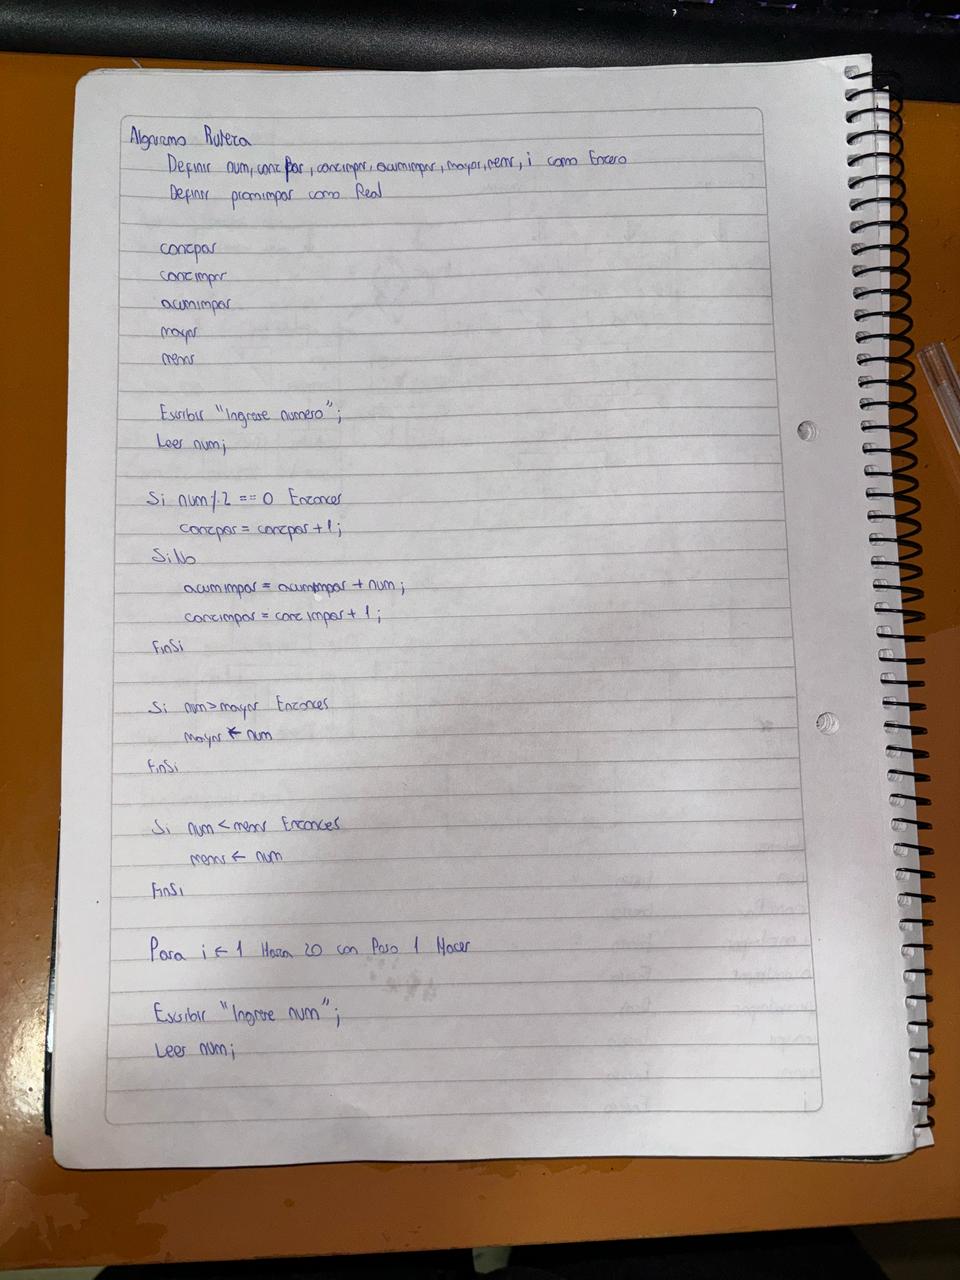 Algoritmo Rutera
Definir num, contpar, contimpar, acumimpar, mayor, menor, i como Entero
Definir promimpar como Real
contpar
contimpar
acumimpar
mayor
menor
Escribir "Ingrese numero";
Leer num;
Si num%2 == 0 Entonces
contpar = contpar + 1;
SiNo
acumimpar = acumimpar + num;
contimpar = contimpar + 1;
FinSi
Si num>mayor Entonces
mayor ← num
FinSi
Si num<menor Entonces
menor ← num
FinSi
Para i ← 1 Hasta 20 con Paso 1 Hacer
Escribir "Ingrese num";
Leer num;